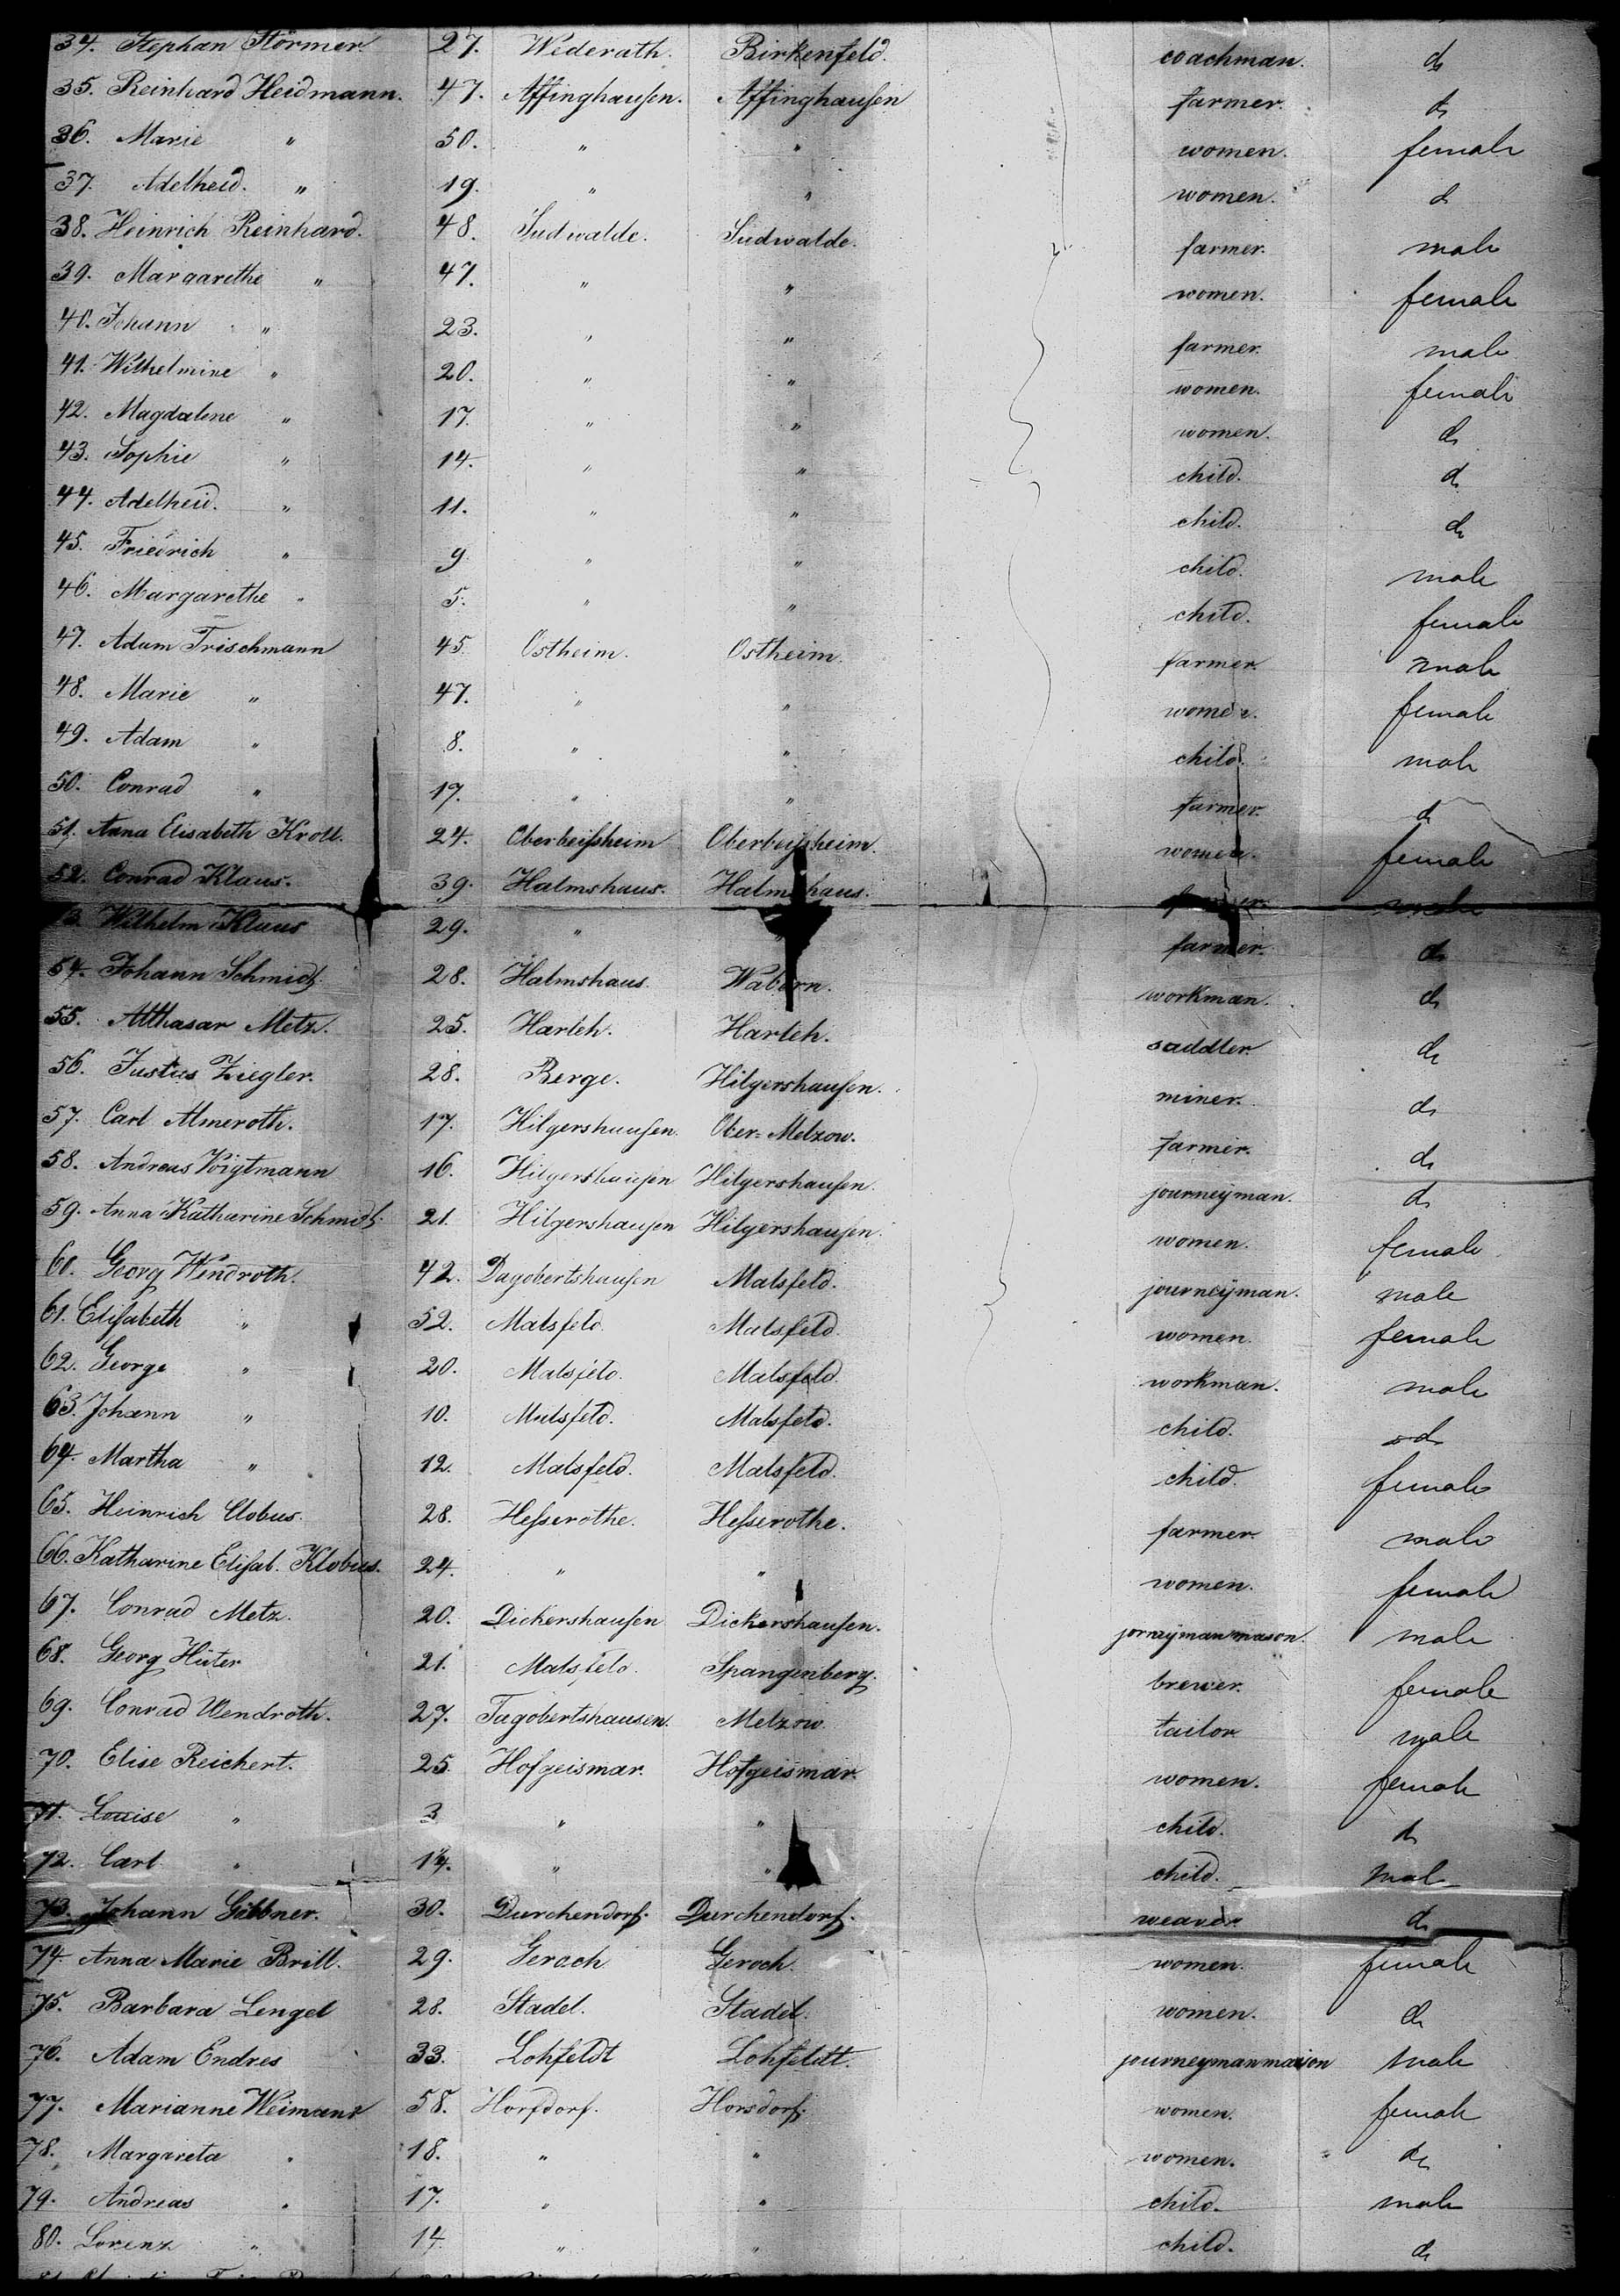 34. Stephan Störmer 27. Wederath. Birkenfeld. coachman. do
35. Reinhard Heidmann. 47. Affinghausen. Affinghausen farmer. do
36. Marie " 50. " " women. female
37. Adelheid. " 19. " " women. do
38. Heinrich Reinhard. 48. Sudwalde. Sudwalde. farmer. male
39. Margarethe " 47. " " women. female
40. Johann " 23. " " farmer. male
41. Wilhelmine " 20. " " women. female
42. Magdalene " 17. " " women. do
43. Sophie " 14. " " child. do
44. Adelheid. " 11. " " child. do
45. Friedrich " 9. " " child. male
46. Margarethe " 5. " " child. female
47. Adam Trischmann 45. Ostheim. Ostheim. farmer. male
48. Marie " 47. " " women. female
49. Adam " 8. " " child. male
50. Conrad " 17. " " farmer. do
51. Anna Elisabeth Kroll. 24. Oberbeisheim Oberbeisheim. women. female
52. Conrad Klaus. 39. Halmshaus. Halmshaus. farmer. male
Wilhelm Klaus 29. " " farmer. do
54. Johann Schmidt. 28. Halmshaus. Wabern. workman. do
55. Althasar Metz. 25. Harleh. Harleh. saddler. do
56. Justus Ziegler. 28. Berge. Hilgershausen. miner. do
57. Carl Almeroth. 17. Hilgershausen. Ober-Melzow. farmer. do
58. Andreas Voigtmann 16. Hilgershausen Hilgershausen. journeyman. do
59. Anna Katharine Schmidt. 21. Hilgershausen Hilgershausen. women. female
60. Georg Wendroth. 42. Dagobertshausen Malsfeld. journeyman. male
61. Elisabeth " 52. Malsfeld. Malsfeld. women. female
62. George " 20. Malsfeld. Malsfeld. workman. male
63. Johann " 10. Malsfeld. Malsfeld. child. do
64. Martha " 12. Malsfeld. Malsfeld. child. female
65. Heinrich Clobus. 28. Hesserothe. Hesserothe. farmer. male
66. Katharine Elisab. Klobus. 24. " " women. female
67. Conrad Metz. 20. Dickershausen Dickershausen. jorneymanmason. male
68. Georg Hüter 21. Malsfeld. Spangenberg. brewer. female
69. Conrad Wendroth. 27. Tagobertshausen. Melzow. tailor male
70. Elise Reichert. 25. Hofgeismar. Hofgeismar. women. female
71. Louise " 3 " " child. do
72. Carl " 14. " " child. male
73. Johann Gibbner. 30. Durchendorf. Durchendorf. weaver. do
74. Anna Marie Brill. 29. Gerach Geroch. women. female
75. Barbara Lengel 28. Stadel. Stadel. women. do
76. Adam Endres 33. Lohfeldt Lohfeldt. journeymanmason male
77. Marianne Weimann 58. Horsdorf. Horsdorf. women. female
78. Margareta " 18. " " women. do
79. Andreas " 17. " " child. male
80. Lorenz " 14. " " child. do